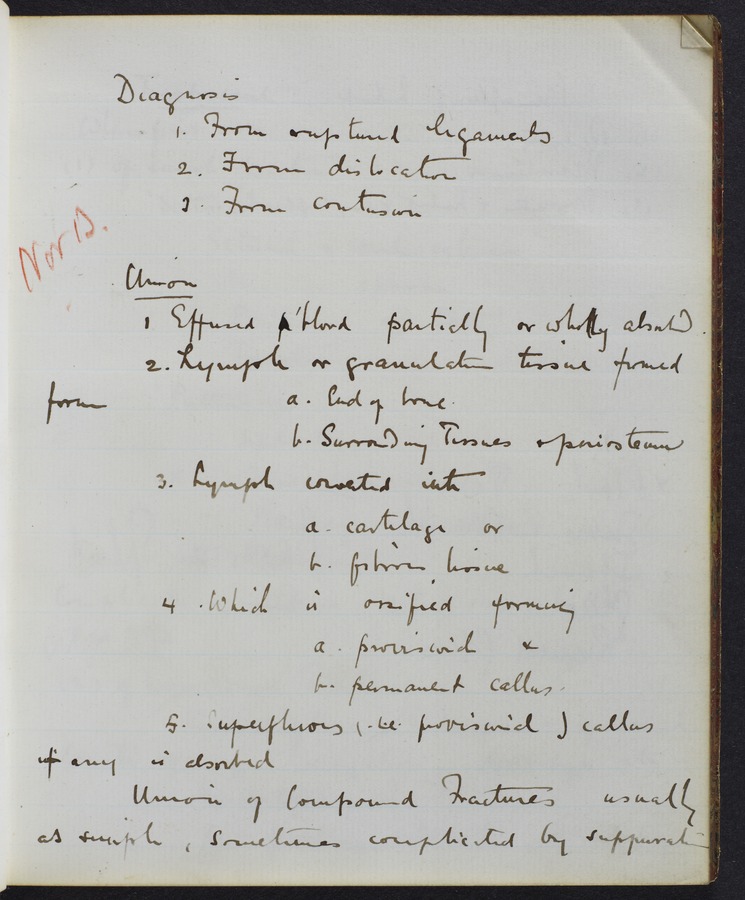 Diagnosis
1. From ruptured ligaments
2. From dislocation
3. From contusion
Nov 13.
Union
1 Effused blood partially or wholly absorbd.
2. Lymph or granulation tissue formed
from a. End of bone.
b. Surrounding Tissues & periosteum
3. Lymph converted into
a. cartilage or
b. fibrous tissue
4. Which is ossified forming
a. provisional &
b. permanent callus.
5. Superfluous (i.e. provisional) callus
if any is absorbed
Union of Compound Fractures usually
as simple, sometimes complicated by suppuration